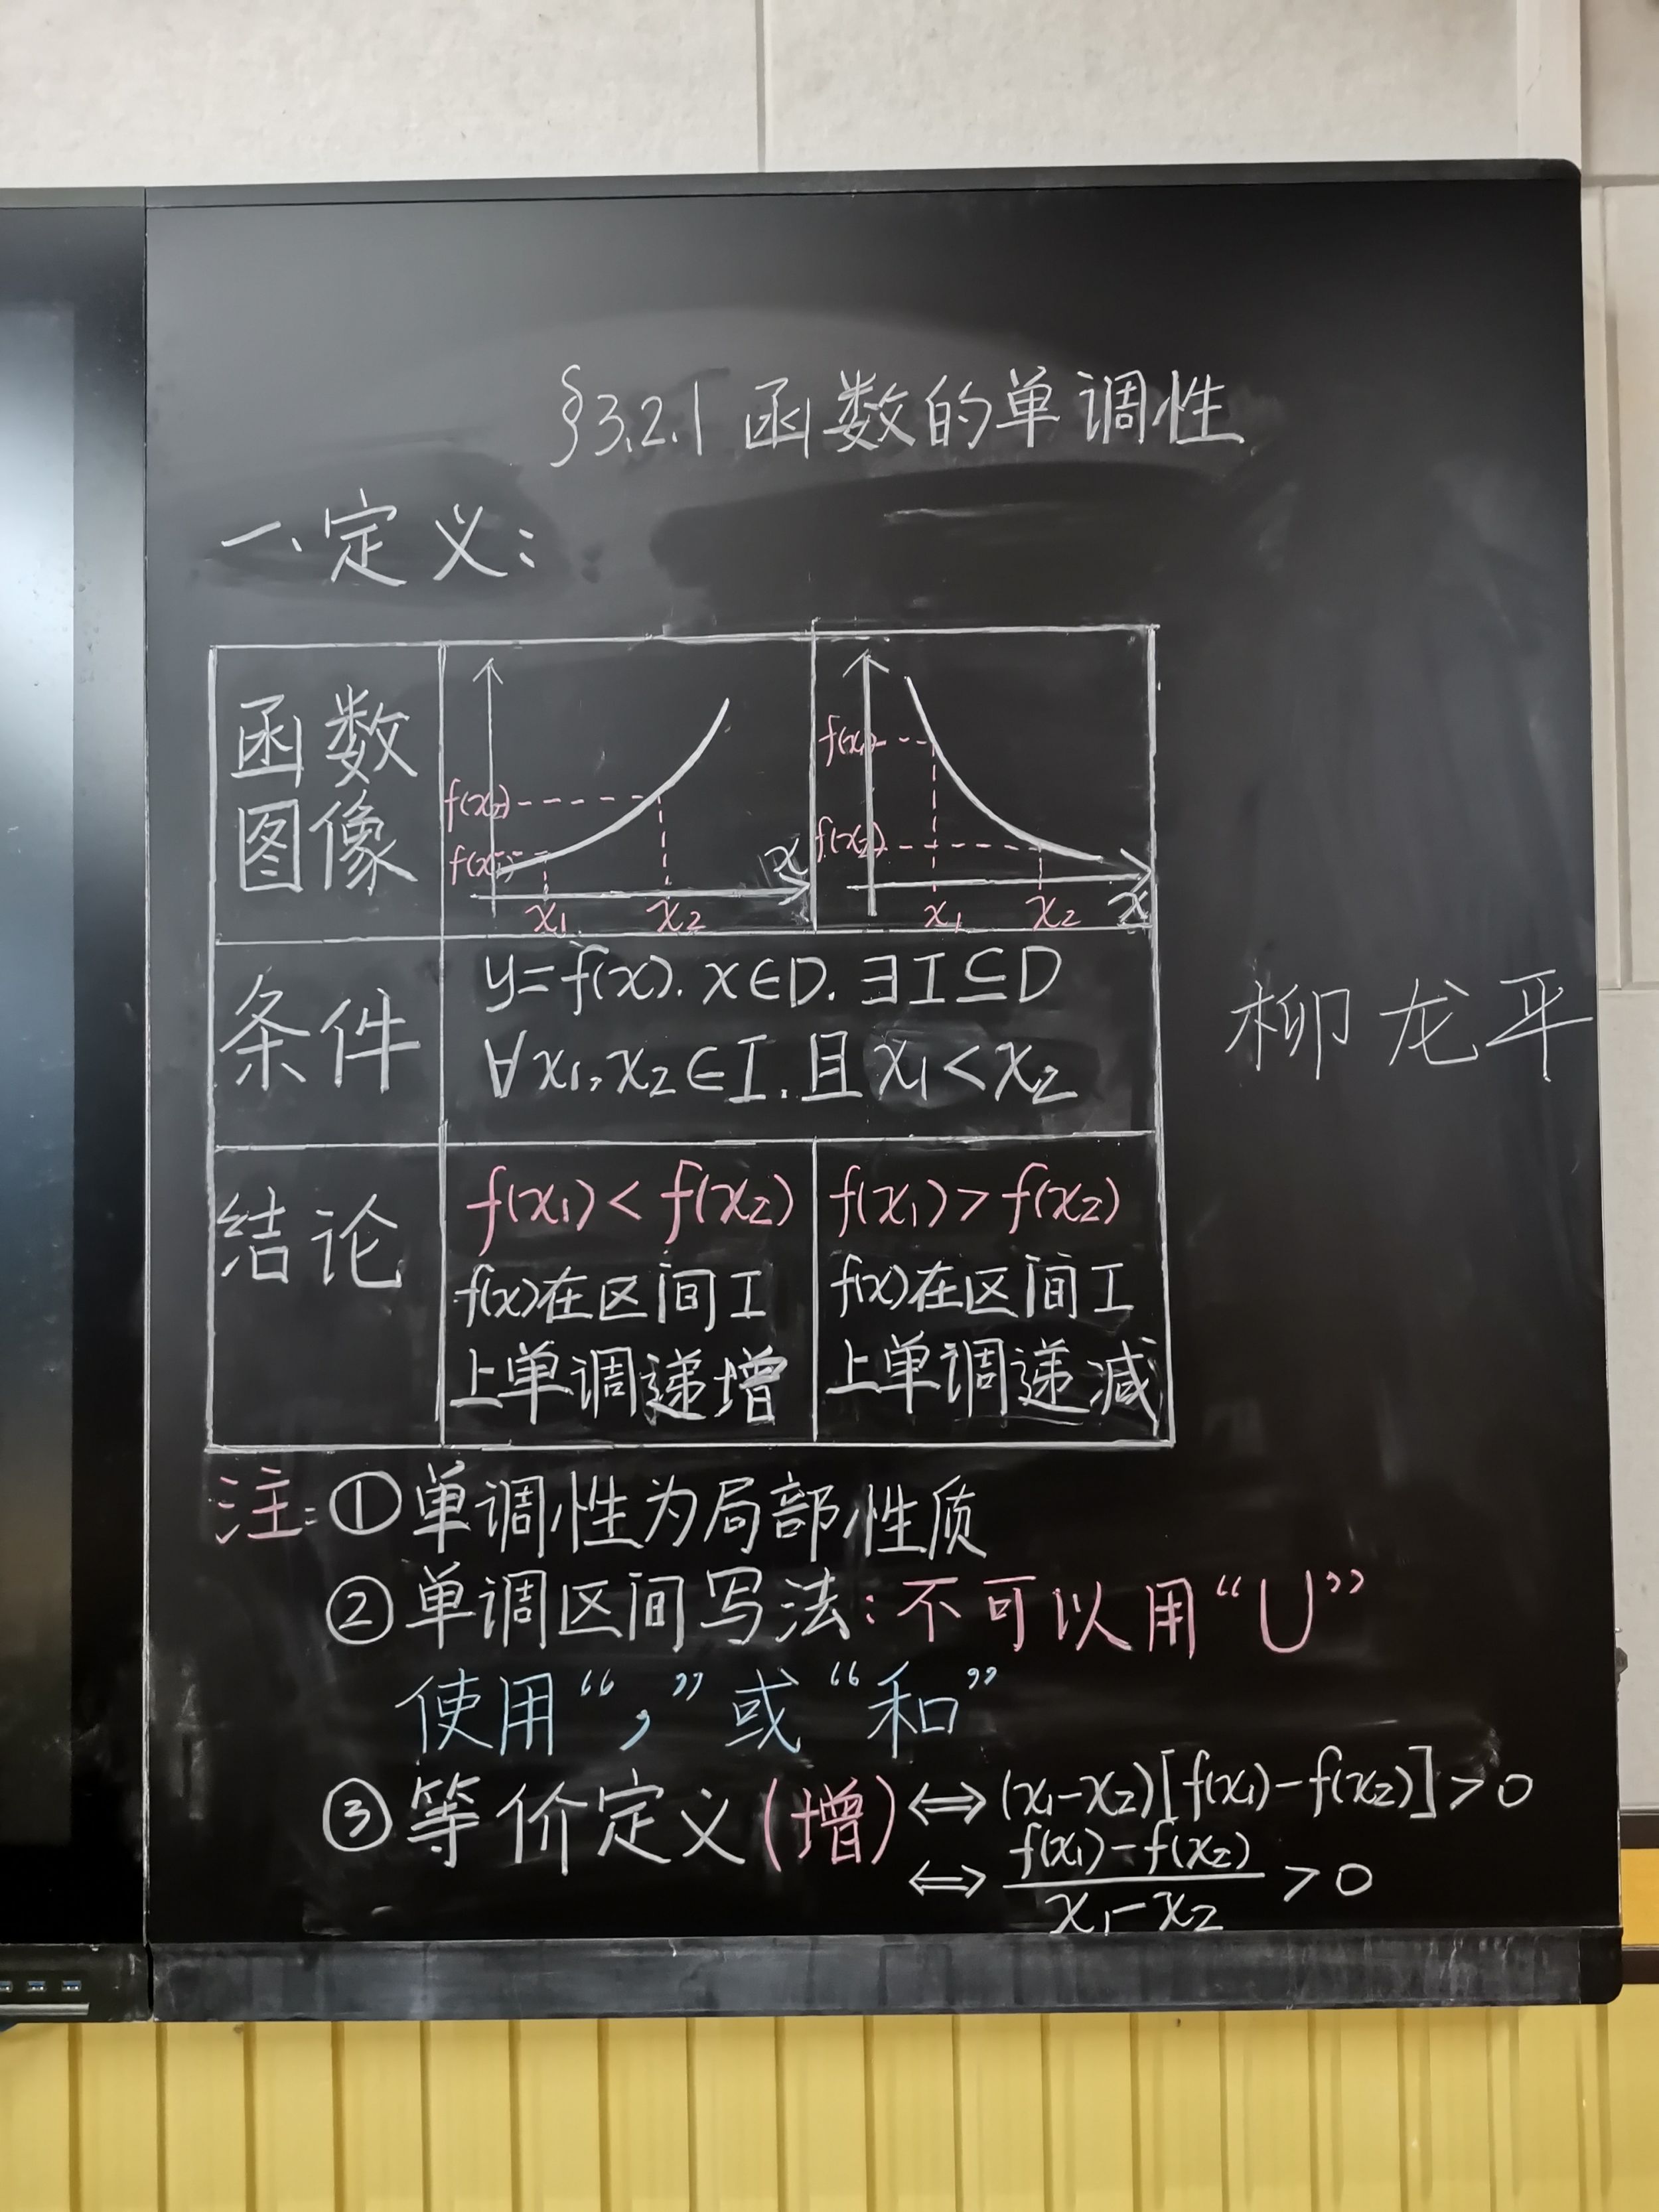 §3.2.1 函数的单调性
一、定义:
函数
图像
f(x₂)
f(x₁)
x₁
x₂
x
f(x₁)
f(x₂)
x₁
x₂
x
条件
y=f(x). x∈D. ∃I⊆D
∀x₁,x₂∈I.且x₁<x₂
结论
f(x₁)<f(x₂)
f(x)在区间I
上单调递增
f(x₁)>f(x₂)
f(x)在区间I
上单调递减
柳龙平
注:①单调性为局部性质
②单调区间写法:不可以用“∪”
使用“,”或“和”
③等价定义(增)⇔(x₁-x₂)[f(x₁)-f(x₂)]>0
⇔ f(x₁)-f(x₂) / x₁-x₂ >0